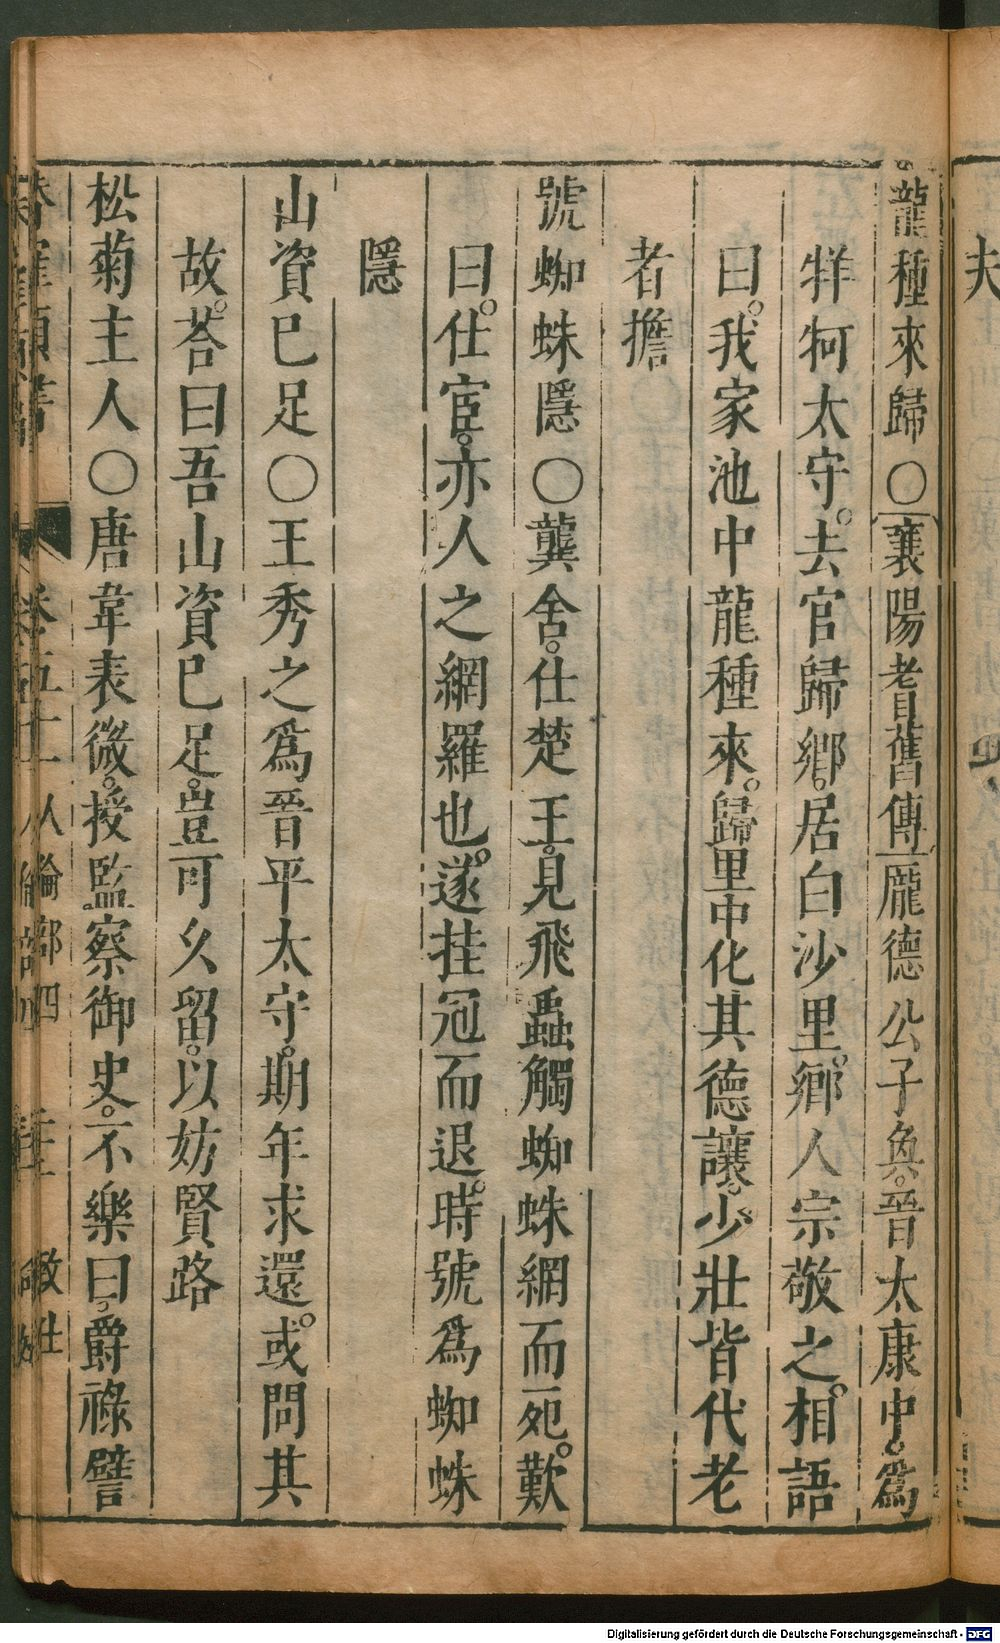 龍種來歸○襄陽耆舊傳龐德公子奐。晉太康中。爲
牂牁太守。去官歸鄉。居白沙里。鄉人宗敬之。相語
曰。我家池中龍種來。歸里中化其德讓。少壯皆代老
者擔
號蜘蛛隱○龔舍。仕楚王。見飛蟲觸蜘蛛網而死。歎
曰。仕宦。亦人之網羅也。遂挂冠而退。時號爲蜘蛛
隱
山資已足○王秀之爲晉平太守。期年求還。或問其
故。荅曰吾山資已足。豈可久留。以妨賢路
松菊主人○唐韋表微。授監察御史。不樂曰。爵祿譬
卷五十一人倫部四 致仕
夫
Digitalisierung gefördert durch die Deutsche Forschungsgemeinschaft - DFG